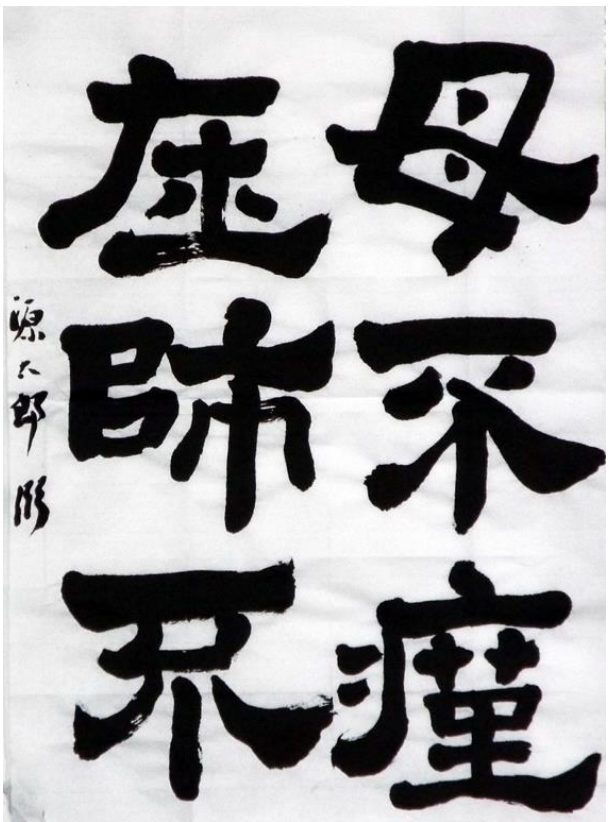 母不瘽
在師不
源太郎臨